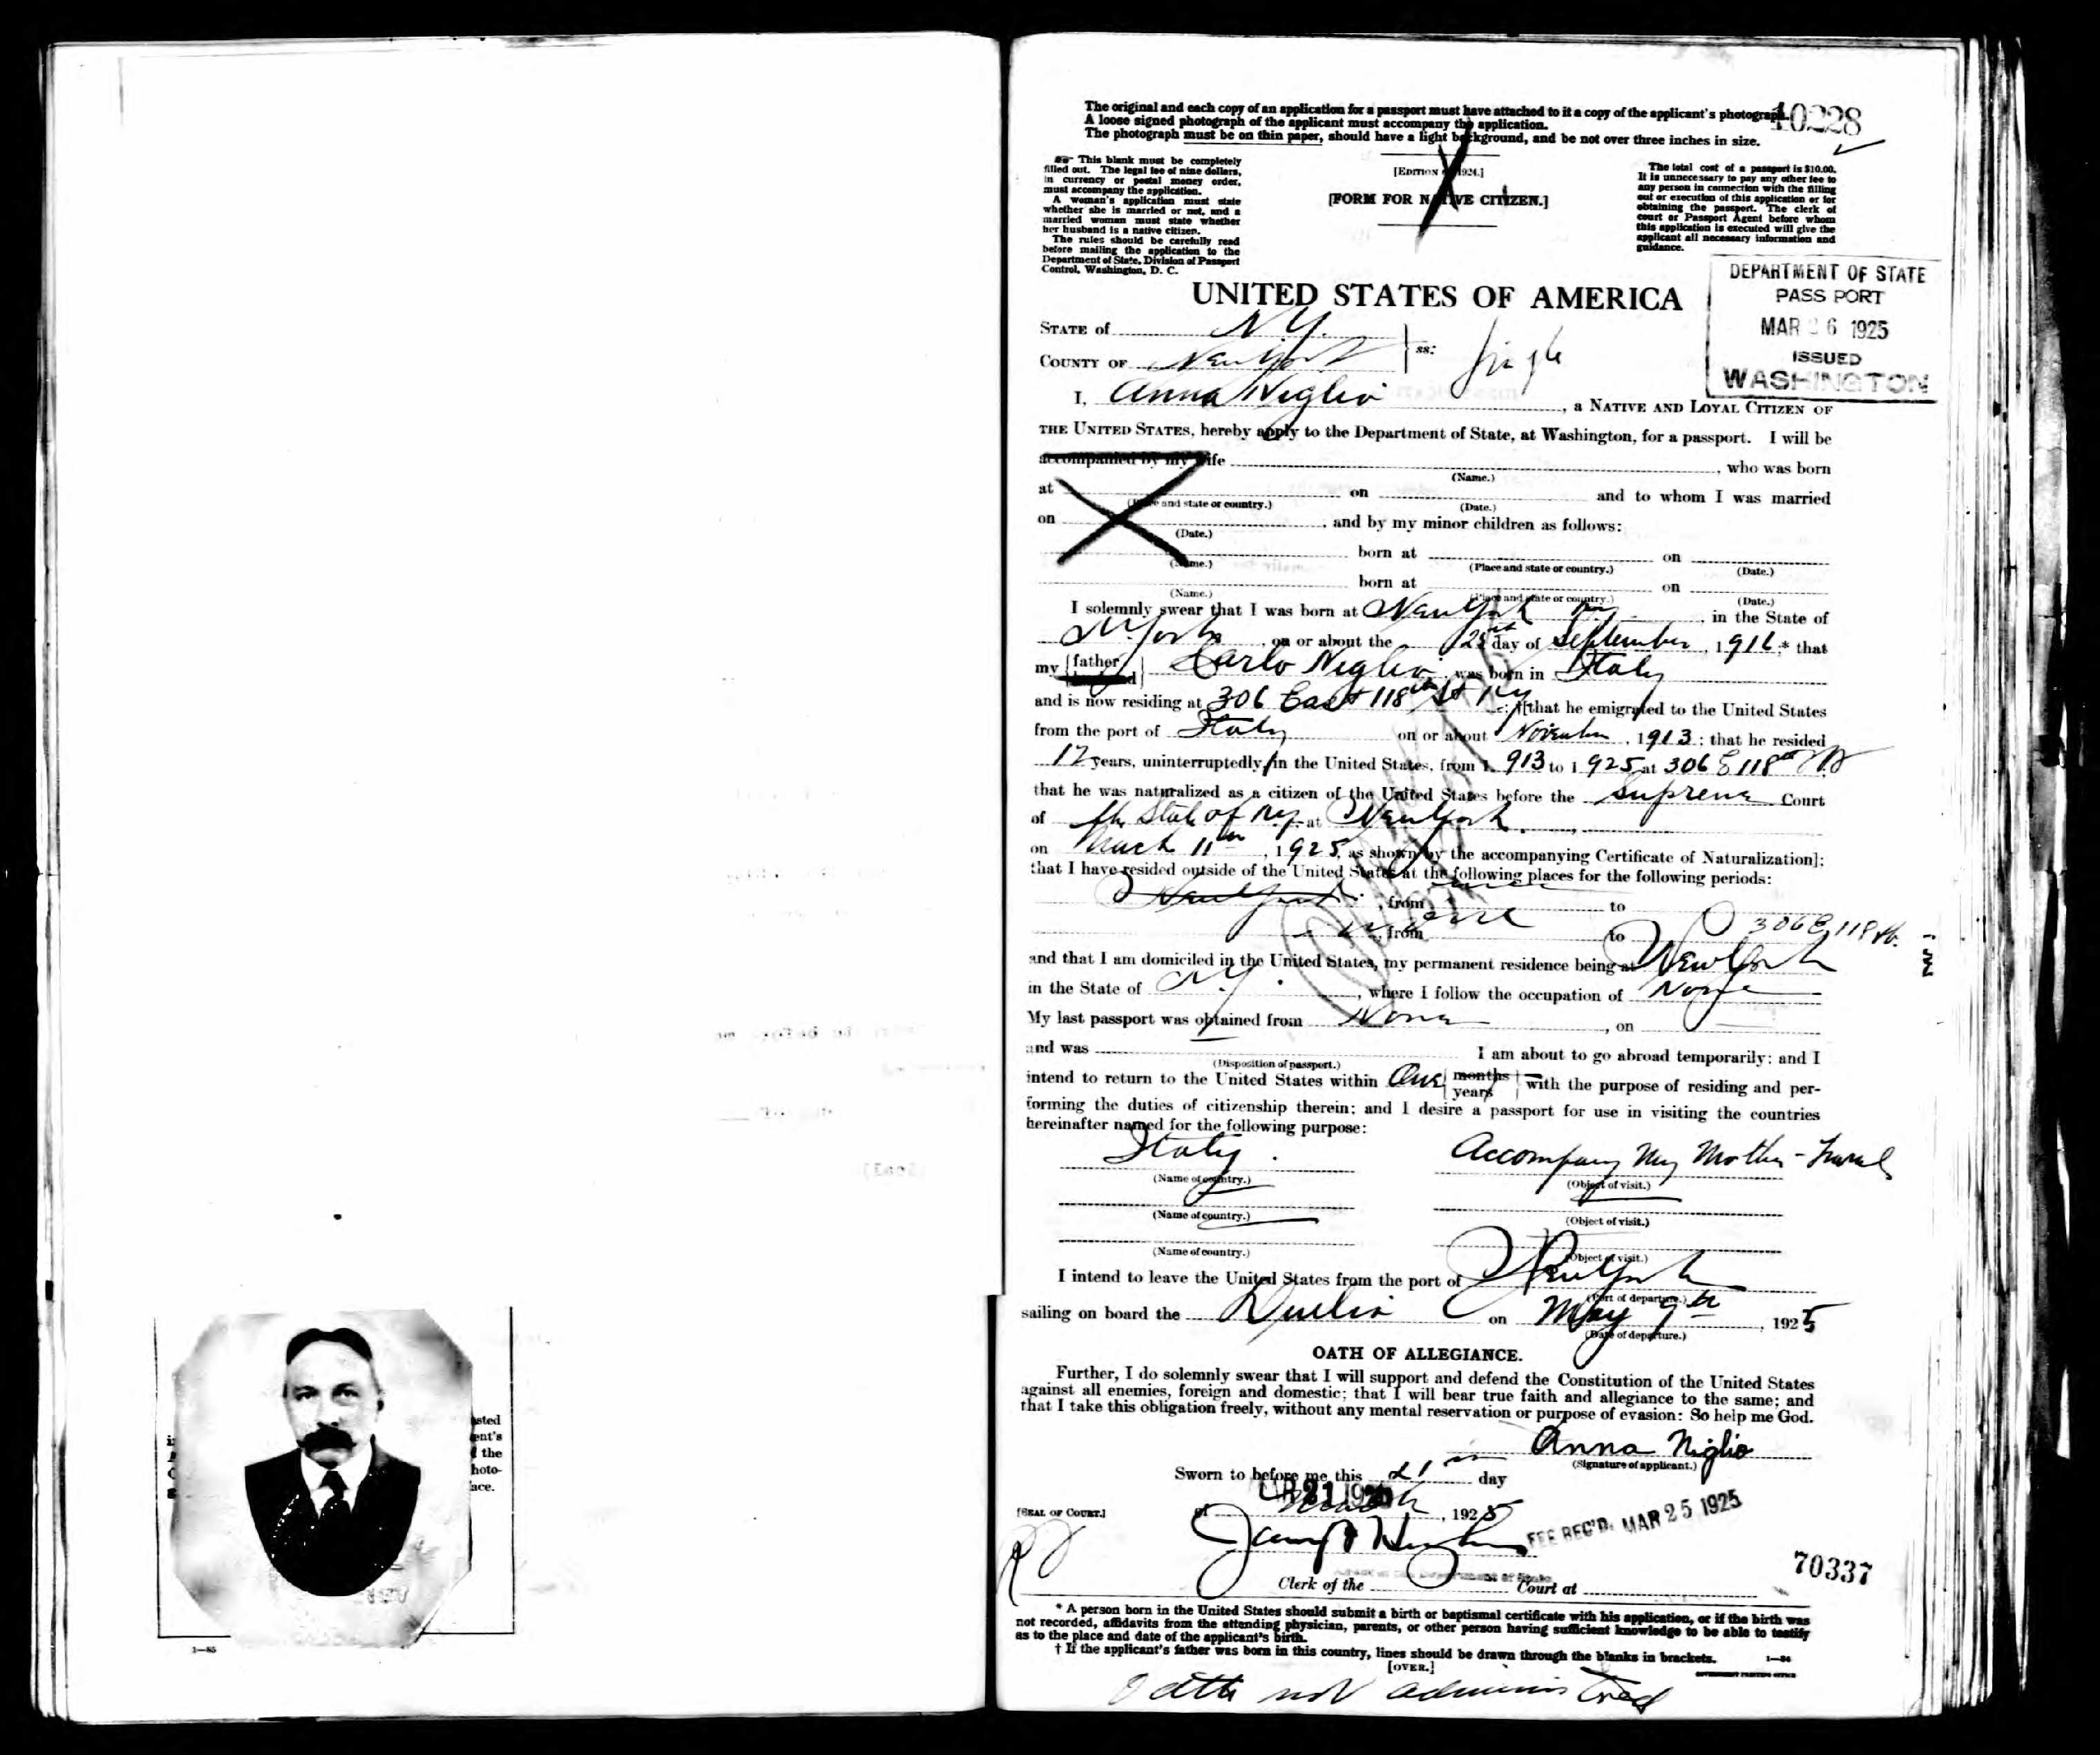 The original and each copy of an application for a passport must have attached to it a copy of the applicant's photograph.
A loose signed photograph of the applicant must accompany the application.
The photograph must be on thin paper, should have a light background, and be not over three inches in size.
10228
This blank must be completely
filled out. The legal fee of nine dollars,
in currency or postal money order,
must accompany the application.
A woman's application must state
whether she is married or not, and a
married woman must state whether
her husband is a native citizen.
The rules should be carefully read
before mailing the application to the
Department of State, Division of Passport
Control, Washington, D. C.
[EDITION 1924.]
[FORM FOR NATIVE CITIZEN.]
The total cost of a passport is $10.00.
It is unnecessary to pay any other fee to
any person in connection with the filling
out or execution of this application or for
obtaining the passport. The clerk of
court or Passport Agent before whom
this application is executed will give the
applicant all necessary information and
guidance.
DEPARTMENT OF STATE
PASS PORT
MAR 26 1925
ISSUED
WASHINGTON
UNITED STATES OF AMERICA
STATE of N.Y.
COUNTY OF New York ss: Single
I, Anna Niglio, a NATIVE AND LOYAL CITIZEN OF
THE UNITED STATES, hereby apply to the Department of State, at Washington, for a passport. I will be
accompanied by my wife , who was born
(Name.)
at on and to whom I was married
(Place and state or country.) (Date.)
on , and by my minor children as follows:
(Date.)
born at on
(Name.) (Place and state or country.) (Date.)
born at on
(Name.) (Place and state or country.) (Date.)
I solemnly swear that I was born at New York Ny, in the State of
N. York, on or about the day of September, 1916,* that
my father Carlo Niglio was born in Italy
and is now residing at 306 East 118th St Ny; †[that he emigrated to the United States
from the port of Italy on or about November, 1913; that he resided
12 years, uninterruptedly, in the United States, from 1913 to 1925, at 306 E 118th St
that he was naturalized as a citizen of the United States before the Supreme Court
of the State of N.Y. at New York
on March 11th, 1925, as shown by the accompanying Certificate of Naturalization];
that I have resided outside of the United States at the following places for the following periods:
New York, from to
, from to 306 E 118 St.
and that I am domiciled in the United States, my permanent residence being at New York
in the State of N.Y., where I follow the occupation of None
My last passport was obtained from None, on
and was I am about to go abroad temporarily; and I
(Disposition of passport.)
intend to return to the United States within One months years with the purpose of residing and per-
forming the duties of citizenship therein; and I desire a passport for use in visiting the countries
hereinafter named for the following purpose:
Italy. Accompany My Mother - Travel
(Name of country.) (Object of visit.)
(Name of country.) (Object of visit.)
(Name of country.) (Object of visit.)
I intend to leave the United States from the port of New York
(Port of departure.)
sailing on board the Duilio on May 9th, 1925
(Date of departure.)
OATH OF ALLEGIANCE.
Further, I do solemnly swear that I will support and defend the Constitution of the United States
against all enemies, foreign and domestic; that I will bear true faith and allegiance to the same; and
that I take this obligation freely, without any mental reservation or purpose of evasion: So help me God.
Anna Niglio
(Signature of applicant.)
Sworn to before me this 21st day
MAR 21 1925
of March, 1925
[SEAL OF COURT.]
FEE REC'D. MAR 25 1925
Clerk of the Court at
70337
* A person born in the United States should submit a birth or baptismal certificate with his application, or if the birth was
not recorded, affidavits from the attending physician, parents, or other person having sufficient knowledge to be able to testify
as to the place and date of the applicant's birth.
† If the applicant's father was born in this country, lines should be drawn through the blanks in brackets.
1—84
[OVER.]
GOVERNMENT PRINTING OFFICE
Oath not administered
sted
ent's
the
hoto-
ace.
1—85